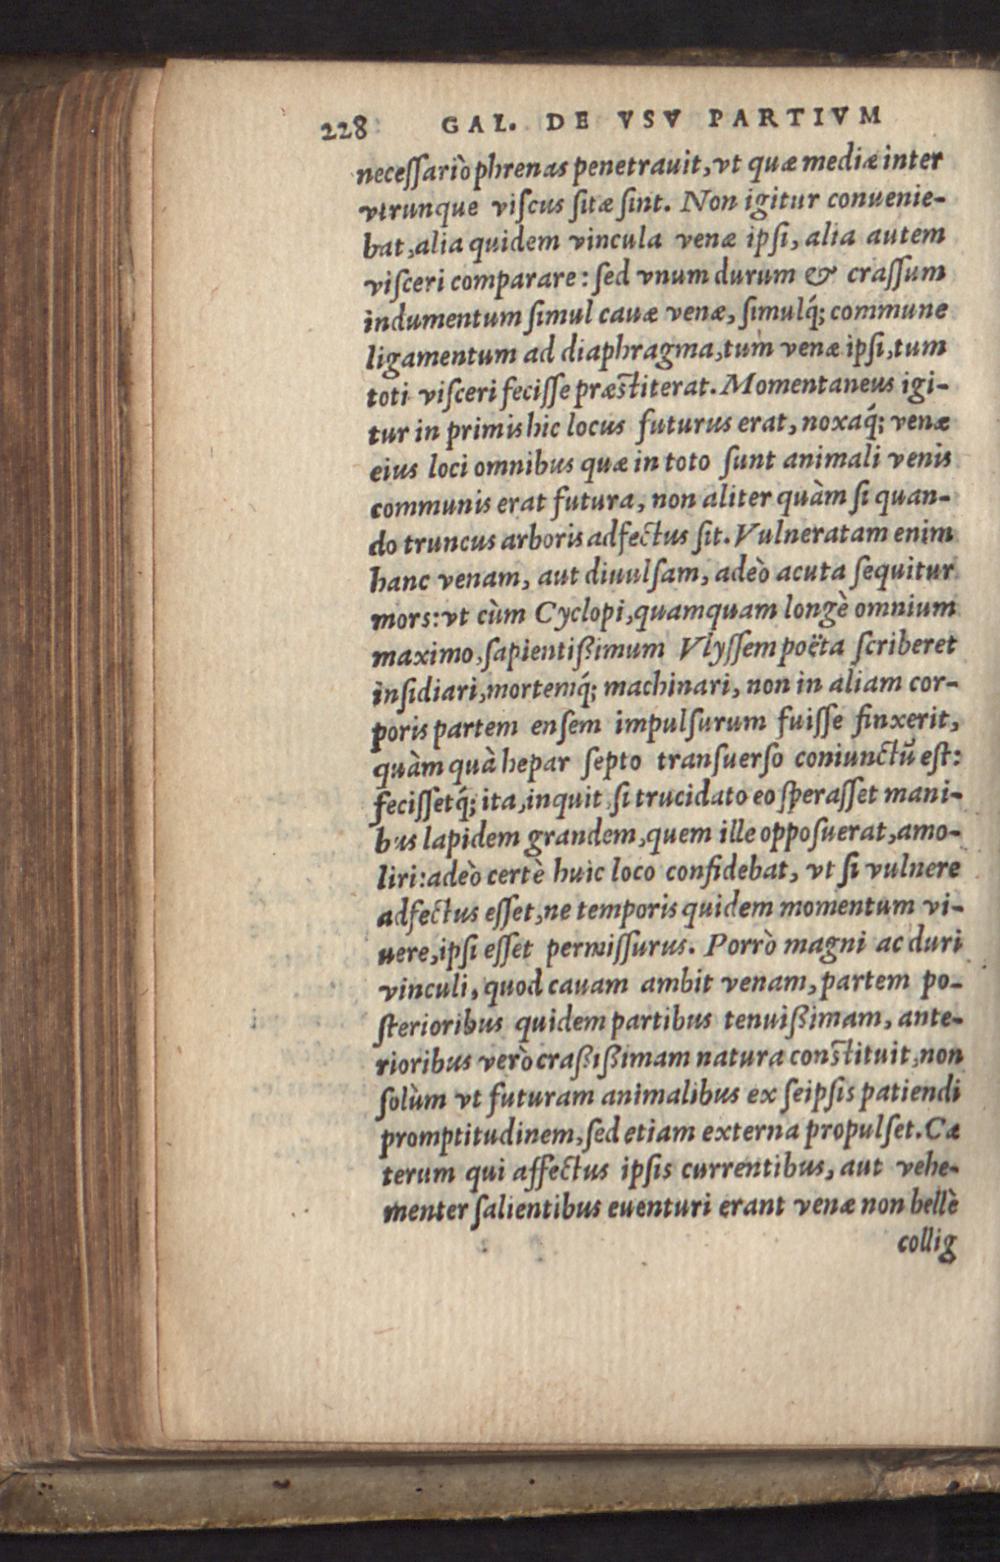 228 GAL. DE VSV PARTIVM
neceſſariò phrenas penetrauit, vt quæ mediæ inter
vtrunque viſcus ſitæ ſint. Non igitur conuenie-
bat, alia quidem vincula venæ ipſi, alia autem
viſceri comparare: ſed vnum durum & craſſum
indumentum ſimul cauæ venæ, ſimulq́; commune
ligamentum ad diaphragma, tum venæ ipſi, tum
toti viſceri feciſſe præstiterat. Momentaneus igi-
tur in primis hic locus futurus erat, noxaq́; venæ
eius loci omnibus quæ in toto ſunt animali venis
communis erat futura, non aliter quàm ſi quan-
do truncus arboris adfectus ſit. Vulneratam enim
hanc venam, aut diuulſam, adeò acuta ſequitur
mors: vt cùm Cyclopi, quamquam longè omnium
maximo, ſapientißimum Vlyſſem poëta ſcriberet
inſidiari, mortemq́; machinari, non in aliam cor-
poris partem enſem impulſurum fuiſſe finxerit,
quàm quà hepar ſepto tranſuerſo coniunctũ eſt:
feciſſetq́; ita, inquit, ſi trucidato eo ſperaſſet mani-
bus lapidem grandem, quem ille oppoſuerat, amo-
liri: adeò certè huic loco confidebat, vt ſi vulnere
adfectus eſſet, ne temporis quidem momentum vi-
uere, ipſi eſſet permiſſurus. Porrò magni ac duri
vinculi, quod cauam ambit venam, partem po-
ſterioribus quidem partibus tenuißimam, ante-
rioribus verò craßißimam natura constituit, non
ſolùm vt futuram animalibus ex ſeipſis patiendi
promptitudinem, ſed etiam externa propulſet. Cæ
terum qui affectus ipſis currentibus, aut vehe-
menter ſalientibus euenturi erant venæ non bellè
collig